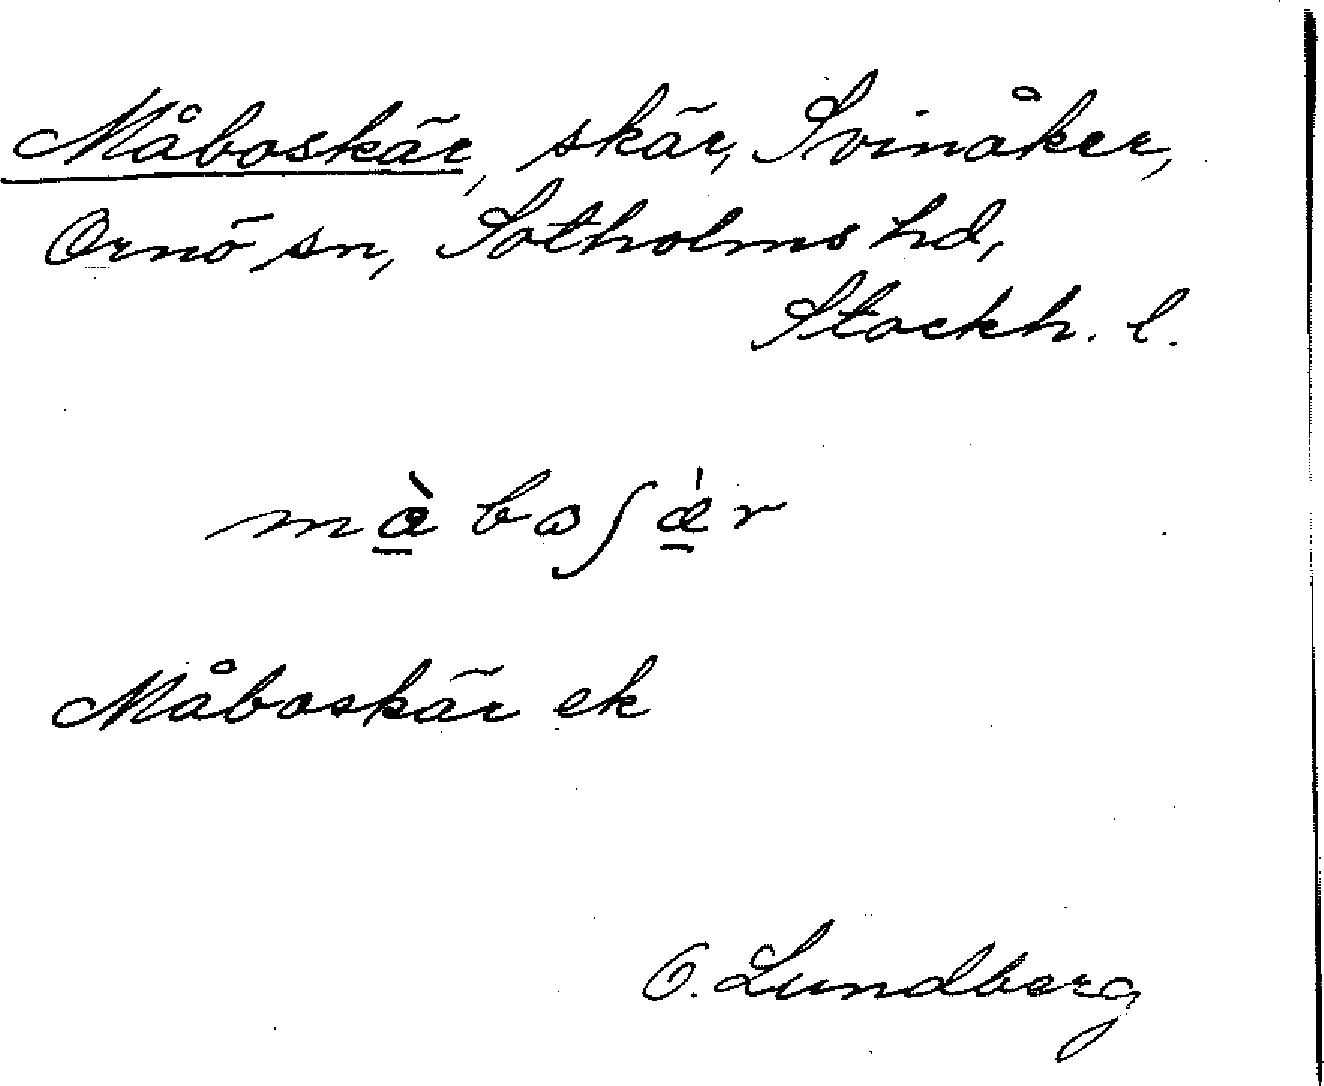 Måboskär, skär, Svinåker,
Ornö sn, Sotholms hd,
Stockh. l.
må̀boʃæ̍r
Måboskär ek
O. Lundberg